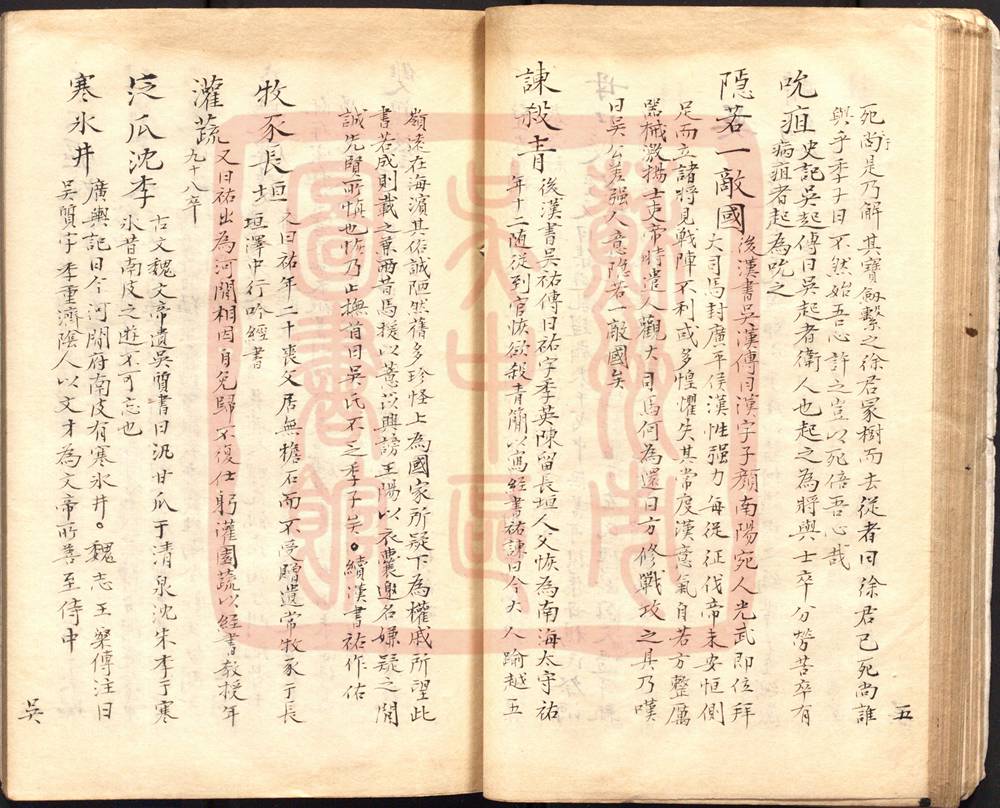 死尚是乃解其寶劍繫之徐君冢樹而去從者曰徐君已死尚誰
與乎季子曰不然始吾心許之豈以死倍吾心哉
吮疽
史記吳起傳曰吳起者衛人也起之為將與士卒分勞苦卒有
病疽者起為吮之
隱若一敵國
後漢書吳漢傳曰漢字子顏南陽宛人光武即位拜
大司馬封廣平侯漢性强力每從征伐帝未安恒側
足而立諸將見戰陣不利或多惶懼失其常度漢意氣自若方整厲
器械激揚士吏帝時遣人觀大司馬何為還曰方修戰攻之具乃嘆
曰吳公差强人意隱若一敵國矣
諫殺青
後漢書吳祐傳曰祐字季英陳留長垣人父恢為南海太守祐
年十二随從到官恢欲殺青簡以寫經書祐諫曰今大人踰越五
嶺遠在海濱其俗誠陋然舊多珍怪上為國家所疑下為權戚所望此
書若成則載之兼兩昔馬援以薏苡興謗王陽以衣囊邀名嫌疑之間
誠先賢所慎也恢乃止撫首曰吳氏不乏季子矣。續漢書祐作佑
牧豕長垣
又曰祐年二十喪父居無檐石而不受贈遺常牧豕于長
垣澤中行吟經書
灌蔬
又曰祐出為河間相因自免歸不復仕躬灌園蔬以經書教授年
九十八卒
泛瓜沈李
古文魏文帝遺吳質書曰汎甘瓜于清泉沈朱李于寒
氷昔南皮之遊不可忘也
寒氷井
廣輿記曰今河間府南皮有寒氷井。魏志王粲傳注曰
吳質字季重濟陰人以文才為文帝所善至侍中
五
吳
蘇州市
吳中區
圖書館